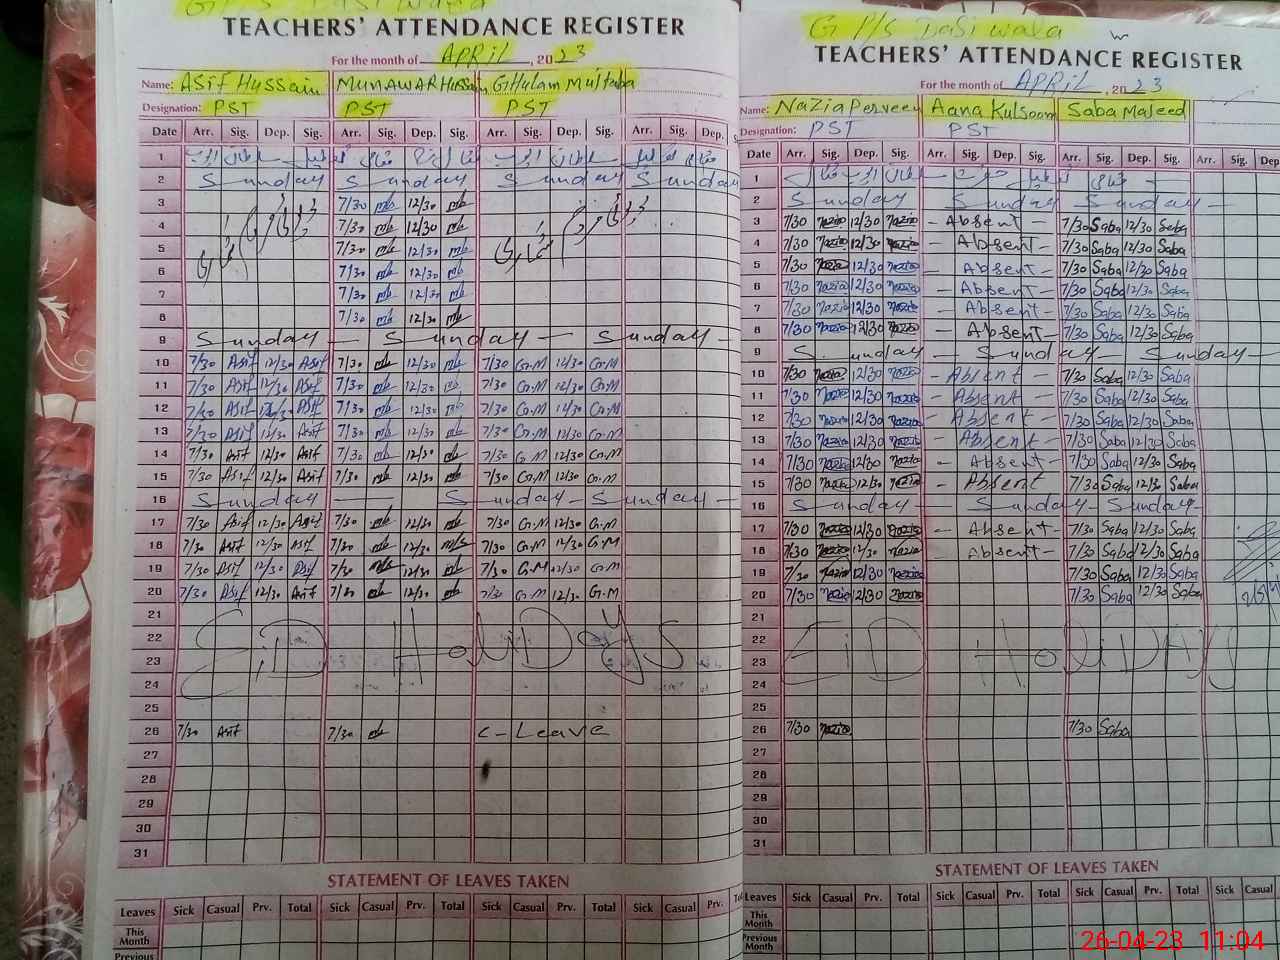 TEACHERS' ATTENDANCE REGISTER
For the month of APRIL, 2023
Name: Asif Hussain MUNAWAR Hussain GHulam Mustaba
Designation: PST PST PST
Date Arr. Sig. Dep. Sig. Arr. Sig. Dep. Sig. Arr. Sig. Dep. Sig. Arr. Sig. Dep.
1
2 Sunday Sunday Sunday Sunday
3 7/30 mb 12/30 mb
4 7/30 mb 12/30 mb
5 7/30 mb 12/30 mb
6 7/30 mb 12/30 mb
7 7/30 mb 12/30 mb
8 7/30 mb 12/30 mb
9 Sunday — Sunday — Sunday
10 7/30 Asif 12/30 Asif 7/30 mb 12/30 mb 7/30 G.M 12/30 G.M
11 7/30 Asif 12/30 Asif 7/30 mb 12/30 mb 7/30 G.M 12/30 G.M
12 7/30 Asif 12/30 Asif 7/30 mb 12/30 mb 7/30 G.M 12/30 G.M
13 7/30 Asif 12/30 Asif 7/30 mb 12/30 mb 7/30 G.M 12/30 G.M
14 7/30 Asif 12/30 Asif 7/30 mb 12/30 mb 7/30 G.M 12/30 G.M
15 7/30 Asif 12/30 Asif 7/30 mb 12/30 mb 7/30 G.M 12/30 G.M
16 Sunday — Sunday — Sunday —
17 7/30 Asif 12/30 Asif 7/30 mb 12/30 mb 7/30 G.M 12/30 G.M
18 7/30 Asif 12/30 Asif 7/30 mb 12/30 mb 7/30 G.M 12/30 G.M
19 7/30 Asif 12/30 Asif 7/30 mb 12/30 mb 7/30 G.M 12/30 G.M
20 7/30 Asif 12/30 Asif 7/30 mb 12/30 mb 7/30 G.M 12/30 G.M
21
22 EiD HoliDays
23
24
25
26 7/30 Asif 7/30 mb C-Leave
27
28
29
30
31
STATEMENT OF LEAVES TAKEN
Leaves Sick Casual Prv. Total Sick Casual Prv. Total Sick Casual Prv. Total Sick Casual Prv.
This Month
Previous
G P/S Dasi wala
TEACHERS' ATTENDANCE REGISTER
For the month of APRIL, 2023
Name: Nazia Perveen Aana Kulsoom Saba Majeed
Designation: PST PST
Date Arr. Sig. Dep. Sig. Arr. Sig. Dep. Sig. Arr. Sig. Dep. Sig. Arr. Sig. Dep
1
2 Sunday Sunday Sunday —
3 7/30 Nazia 12/30 Nazia - Absent - 7/30 Saba 12/30 Saba
4 7/30 Nazia 12/30 Nazia - Absent - 7/30 Saba 12/30 Saba
5 7/30 Nazia 12/30 Nazia - Absent - 7/30 Saba 12/30 Saba
6 7/30 Nazia 12/30 Nazia - Absent - 7/30 Saba 12/30 Saba
7 7/30 Nazia 12/30 Nazia - Absent - 7/30 Saba 12/30 Saba
8 7/30 Nazia 12/30 Nazia - Absent - 7/30 Saba 12/30 Saba
9 Sunday — Sunday — Sunday —
10 7/30 Nazia 12/30 Nazia - Absent - 7/30 Saba 12/30 Saba
11 7/30 Nazia 12/30 Nazia - Absent - 7/30 Saba 12/30 Saba
12 7/30 Nazia 12/30 Nazia - Absent - 7/30 Saba 12/30 Saba
13 7/30 Nazia 12/30 Nazia - Absent - 7/30 Saba 12/30 Saba
14 7/30 Nazia 12/30 Nazia - Absent - 7/30 Saba 12/30 Saba
15 7/30 Nazia 12/30 Nazia - Absent 7/30 Saba 12/30 Saba
16 Sunday — Sunday — Sunday —
17 7/30 Nazia 12/30 Nazia - Absent - 7/30 Saba 12/30 Saba
18 7/30 Nazia 12/30 Nazia Absent - 7/30 Saba 12/30 Saba
19 7/30 Nazia 12/30 Nazia 7/30 Saba 12/30 Saba
20 7/30 Nazia 12/30 Nazia 7/30 Saba 12/30 Saba
21
22 EiD HoliDAy
23
24
25
26 7/30 Nazia 7/30 Saba
27
28
29
30
31
STATEMENT OF LEAVES TAKEN
Leaves Sick Casual Prv. Total Sick Casual Prv. Total Sick Casual Prv. Total Sick Casual
This Month
Previous Month
26-04-23 11:04